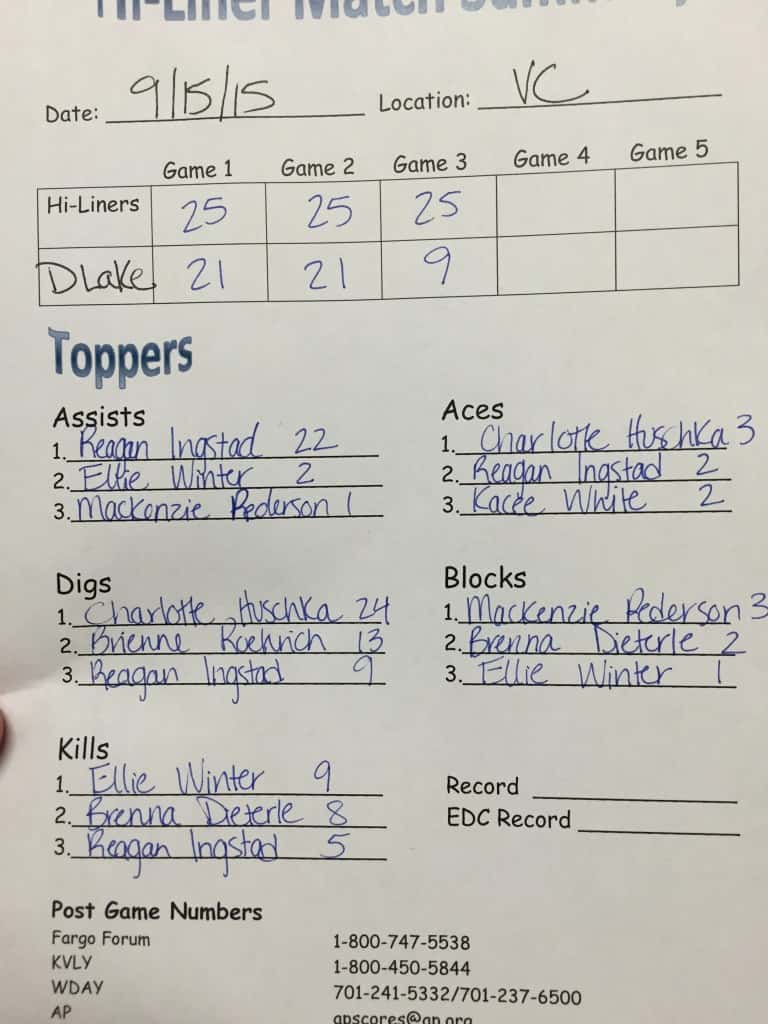 Hi-Liner Match Summary
Date: 9/15/15 Location: VC
Game 1 Game 2 Game 3 Game 4 Game 5
Hi-Liners 25 25 25
DLake 21 21 9
Toppers
Assists
1. Reagan Ingstad 22
2. Ellie Winter 2
3. Mackenzie Pederson 1
Aces
1. Charlotte Huschka 3
2. Reagan Ingstad 2
3. Kacee White 2
Digs
1. Charlotte Huschka 24
2. Brienne Roehrich 13
3. Reagan Ingstad 9
Blocks
1. Mackenzie Pederson 3
2. Brenna Dieterle 2
3. Ellie Winter 1
Kills
1. Ellie Winter 9
2. Brenna Dieterle 8
3. Reagan Ingstad 5
Record
EDC Record
Post Game Numbers
Fargo Forum 1-800-747-5538
KVLY 1-800-450-5844
WDAY 701-241-5332/701-237-6500
AP apscores@ap.org